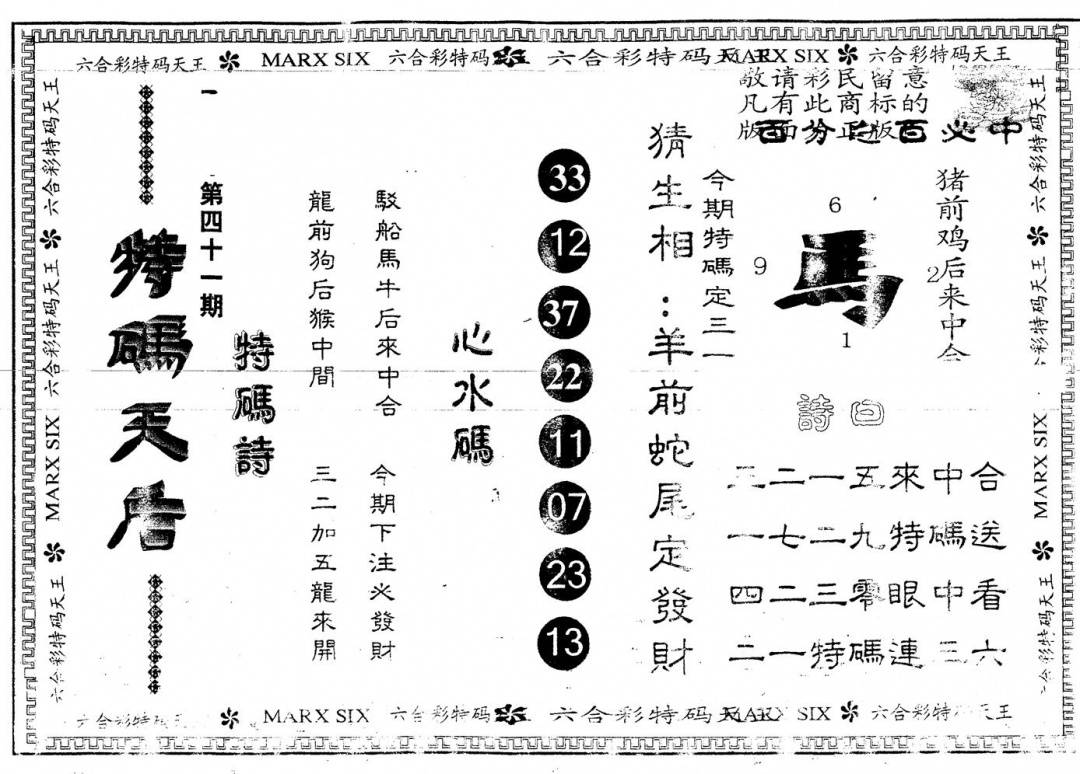 六合彩特码天王 MARX SIX 六合彩特码 六合彩特码天 MARX SIX 六合彩特码天王
敬请彩民留意
凡有此商标的
版
百分之百必中
猪前鸡后来中合
6
9
馬
2
1
今期特碼定三一
猜生相：羊前蛇尾定發財
白詩
三二一五來中合
一七二九特碼送
四二三零眼中看
二一特碼連三六
33
12
37
22
11
07
23
13
心水碼
駁船馬牛后來中合
今期下注必發財
龍前狗后猴中間
三二加五龍來開
特碼詩
第四十一期
特碼天后
六合彩特码天王 六合彩特码天王 MARX SIX 六合彩特码天王
六合彩特码天王 彩特码天王 MARX SIX 六合彩特码天王
六合彩特码天王 MARX SIX 六合彩特码 六合彩特码天 MARX SIX 六合彩特码天王